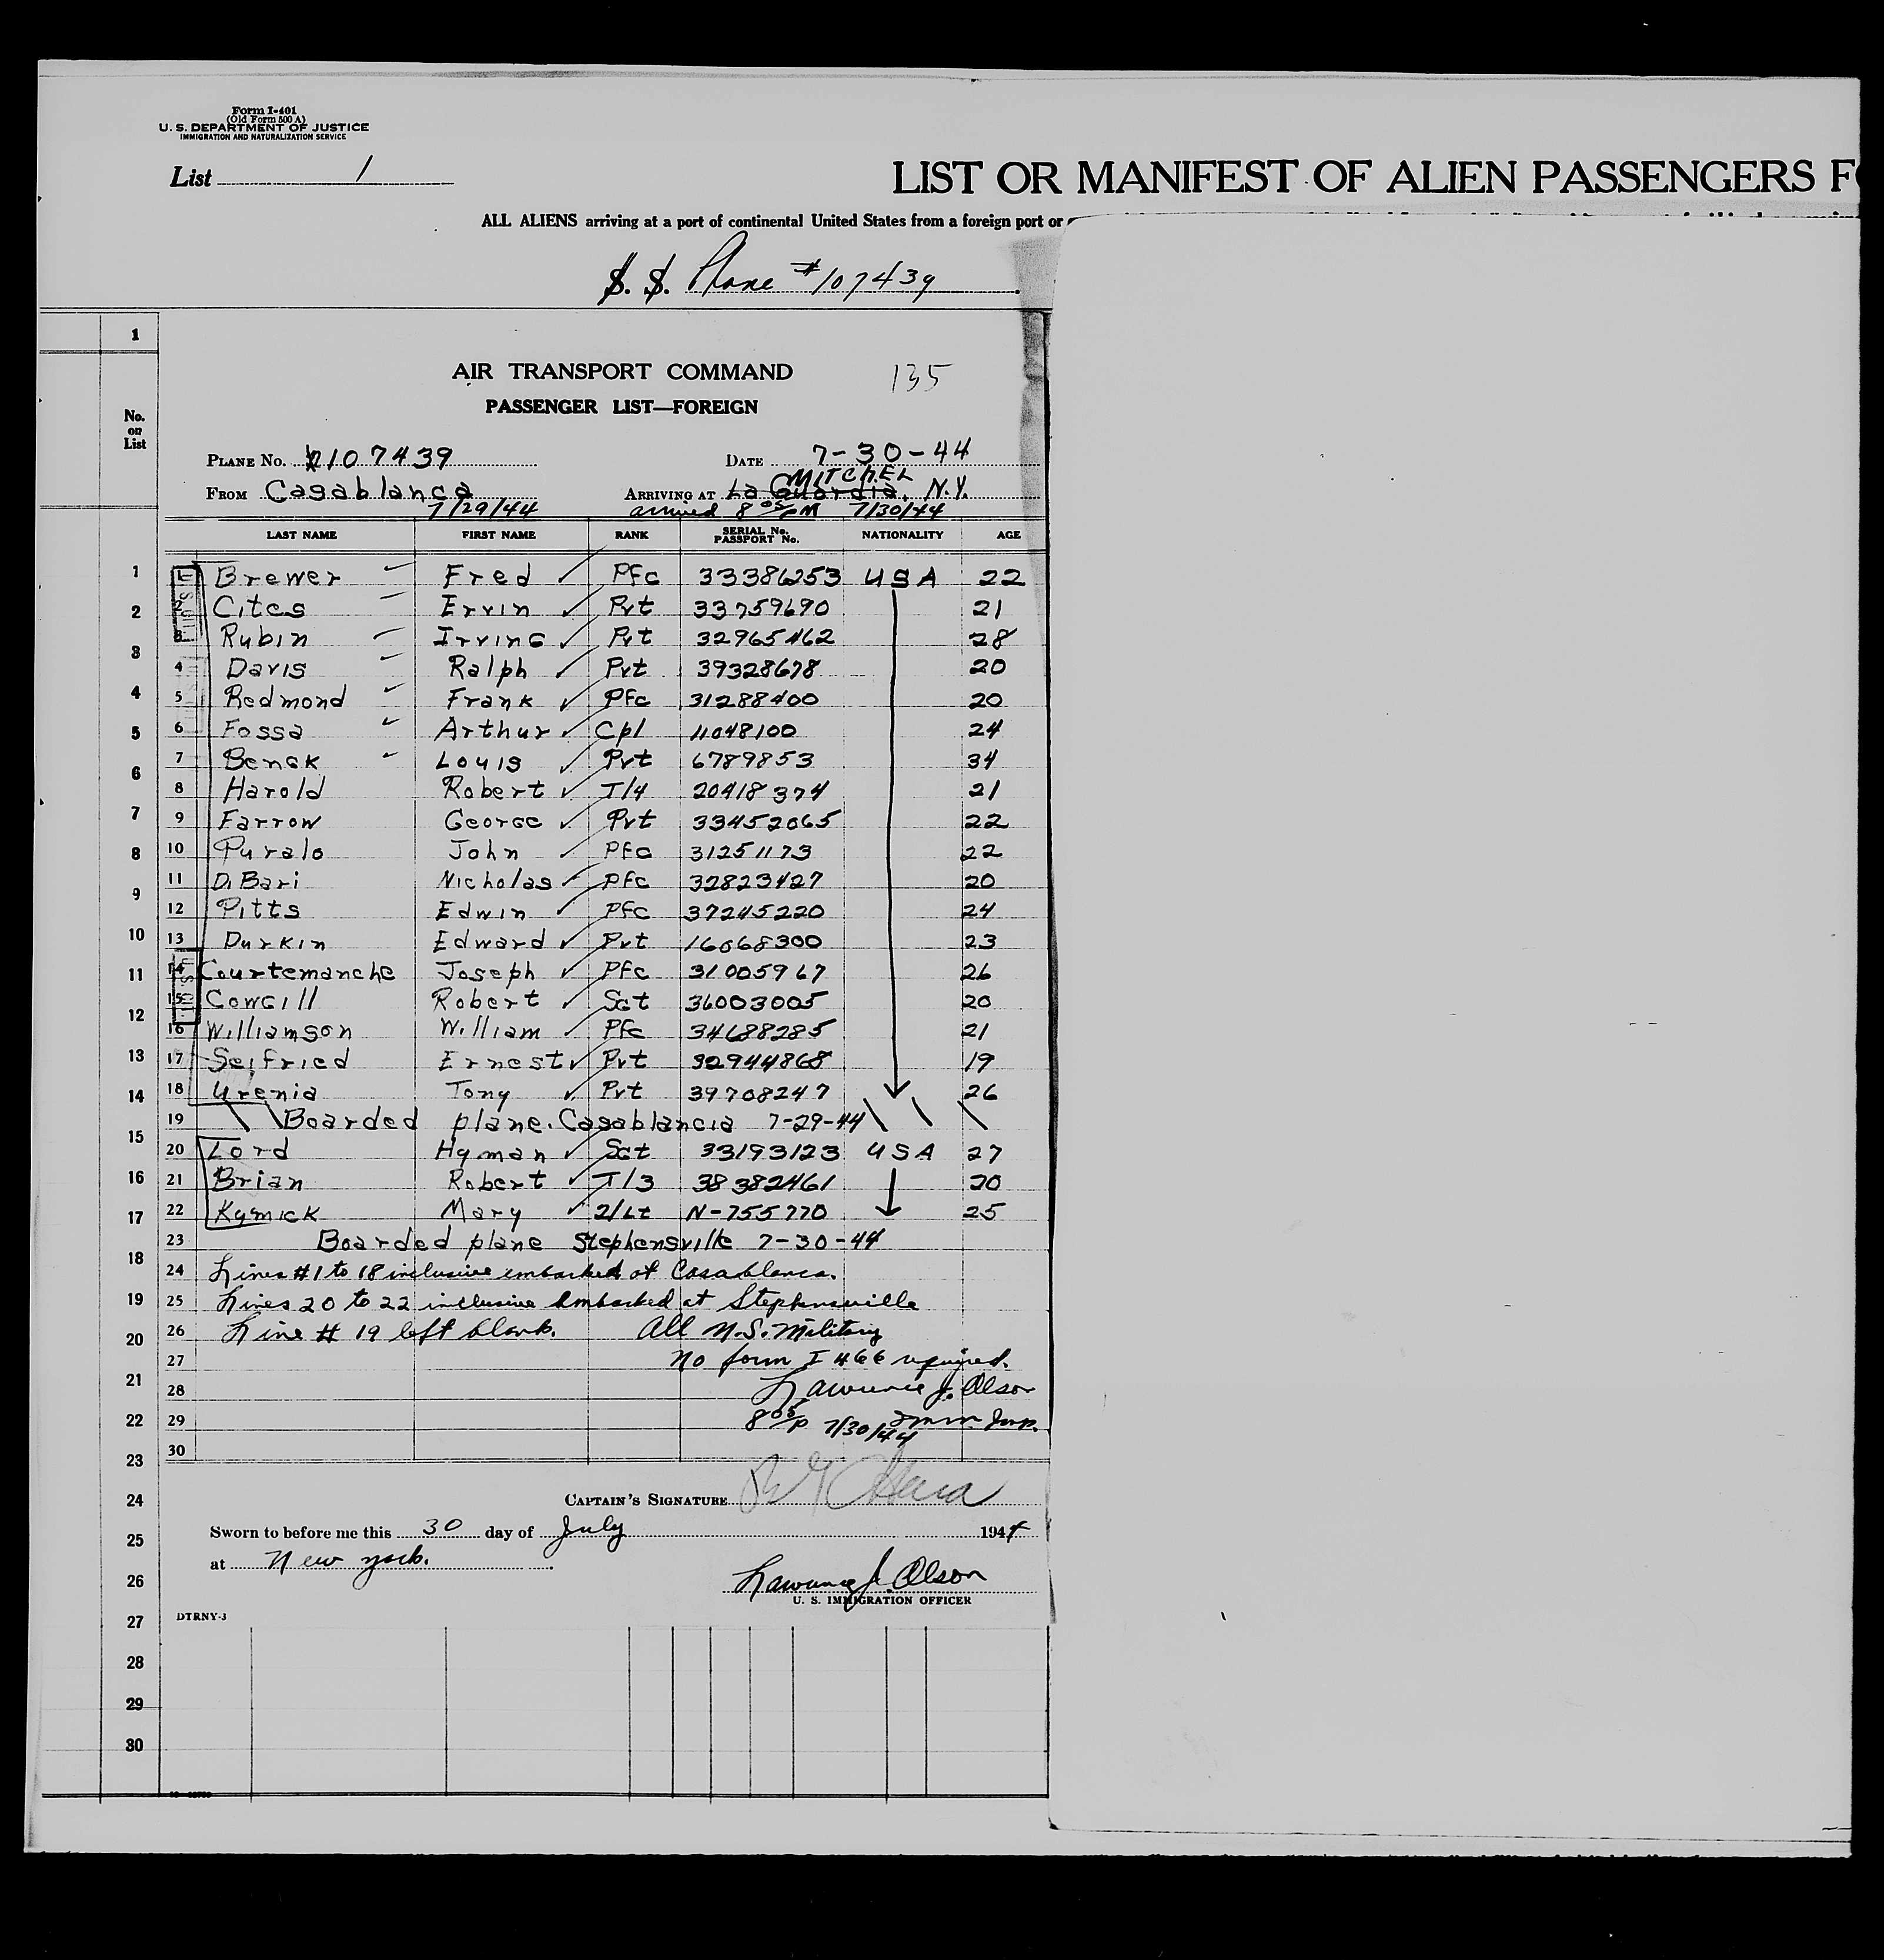 Form I-401
(Old Form 500 A)
U. S. DEPARTMENT OF JUSTICE
IMMIGRATION AND NATURALIZATION SERVICE
List 1
LIST OR MANIFEST OF ALIEN PASSENGERS F
ALL ALIENS arriving at a port of continental United States from a foreign port or
S. S. Plane #107439
1
No. on List
AIR TRANSPORT COMMAND 135
PASSENGER LIST—FOREIGN
PLANE No. 107439 DATE 7-30-44
MITCHEL
FROM Casablanca ARRIVING AT La Guardia, N.Y.
7/29/44 arrived 8 05 PM 7/30/44
LAST NAME FIRST NAME RANK SERIAL No. PASSPORT No. NATIONALITY AGE
1 Brewer Fred Pfc 33386253 USA 22
2 Cites Ervin Pvt 33759690 21
3 Rubin Irving Pvt 32965462 28
4 Davis Ralph Pvt 39328678 20
5 Redmond Frank Pfc 31288400 20
6 Fossa Arthur Cpl 11048100 24
7 Benak Louis Pvt 6789853 34
8 Harold Robert T/4 20418374 21
9 Farrow George Pvt 33452065 22
10 Puralo John Pfc 31251173 22
11 DiBari Nicholas Pfc 32823427 20
12 Pitts Edwin Pfc 37245220 24
13 Durkin Edward Pvt 16068300 23
14 Courtemanche Joseph Pfc 31005967 26
15 Cowgill Robert Sgt 36003005 20
16 Williamson William Pfc 34688285 21
17 Seifried Ernest Pvt 32944868 19
18 Urenia Tony Pvt 39708247 26
19 Boarded plane Casablancia 7-29-44
20 Lord Hyman Sgt 33193123 USA 27
21 Brian Robert T/3 38382461 20
22 Kymick Mary 2/Lt N-755770 25
23 Boarded plane Stephensville 7-30-44
24 Lines #1 to 18 inclusive embarked at Casablanca.
25 Lines 20 to 22 inclusive Embarked at Stephensville
26 Line # 19 left blank. All U.S. Military
27 No form I 466 required.
28 Lawrence J. Olson
29 8 05 P 7/30/44 Imm. Insp.
30
CAPTAIN'S SIGNATURE
Sworn to before me this 30 day of July 1944
at New York.
Lawrence J. Olson
U. S. IMMIGRATION OFFICER
DTRNY-3
1
2
3
4
5
6
7
8
9
10
11
12
13
14
15
16
17
18
19
20
21
22
23
24
25
26
27
28
29
30